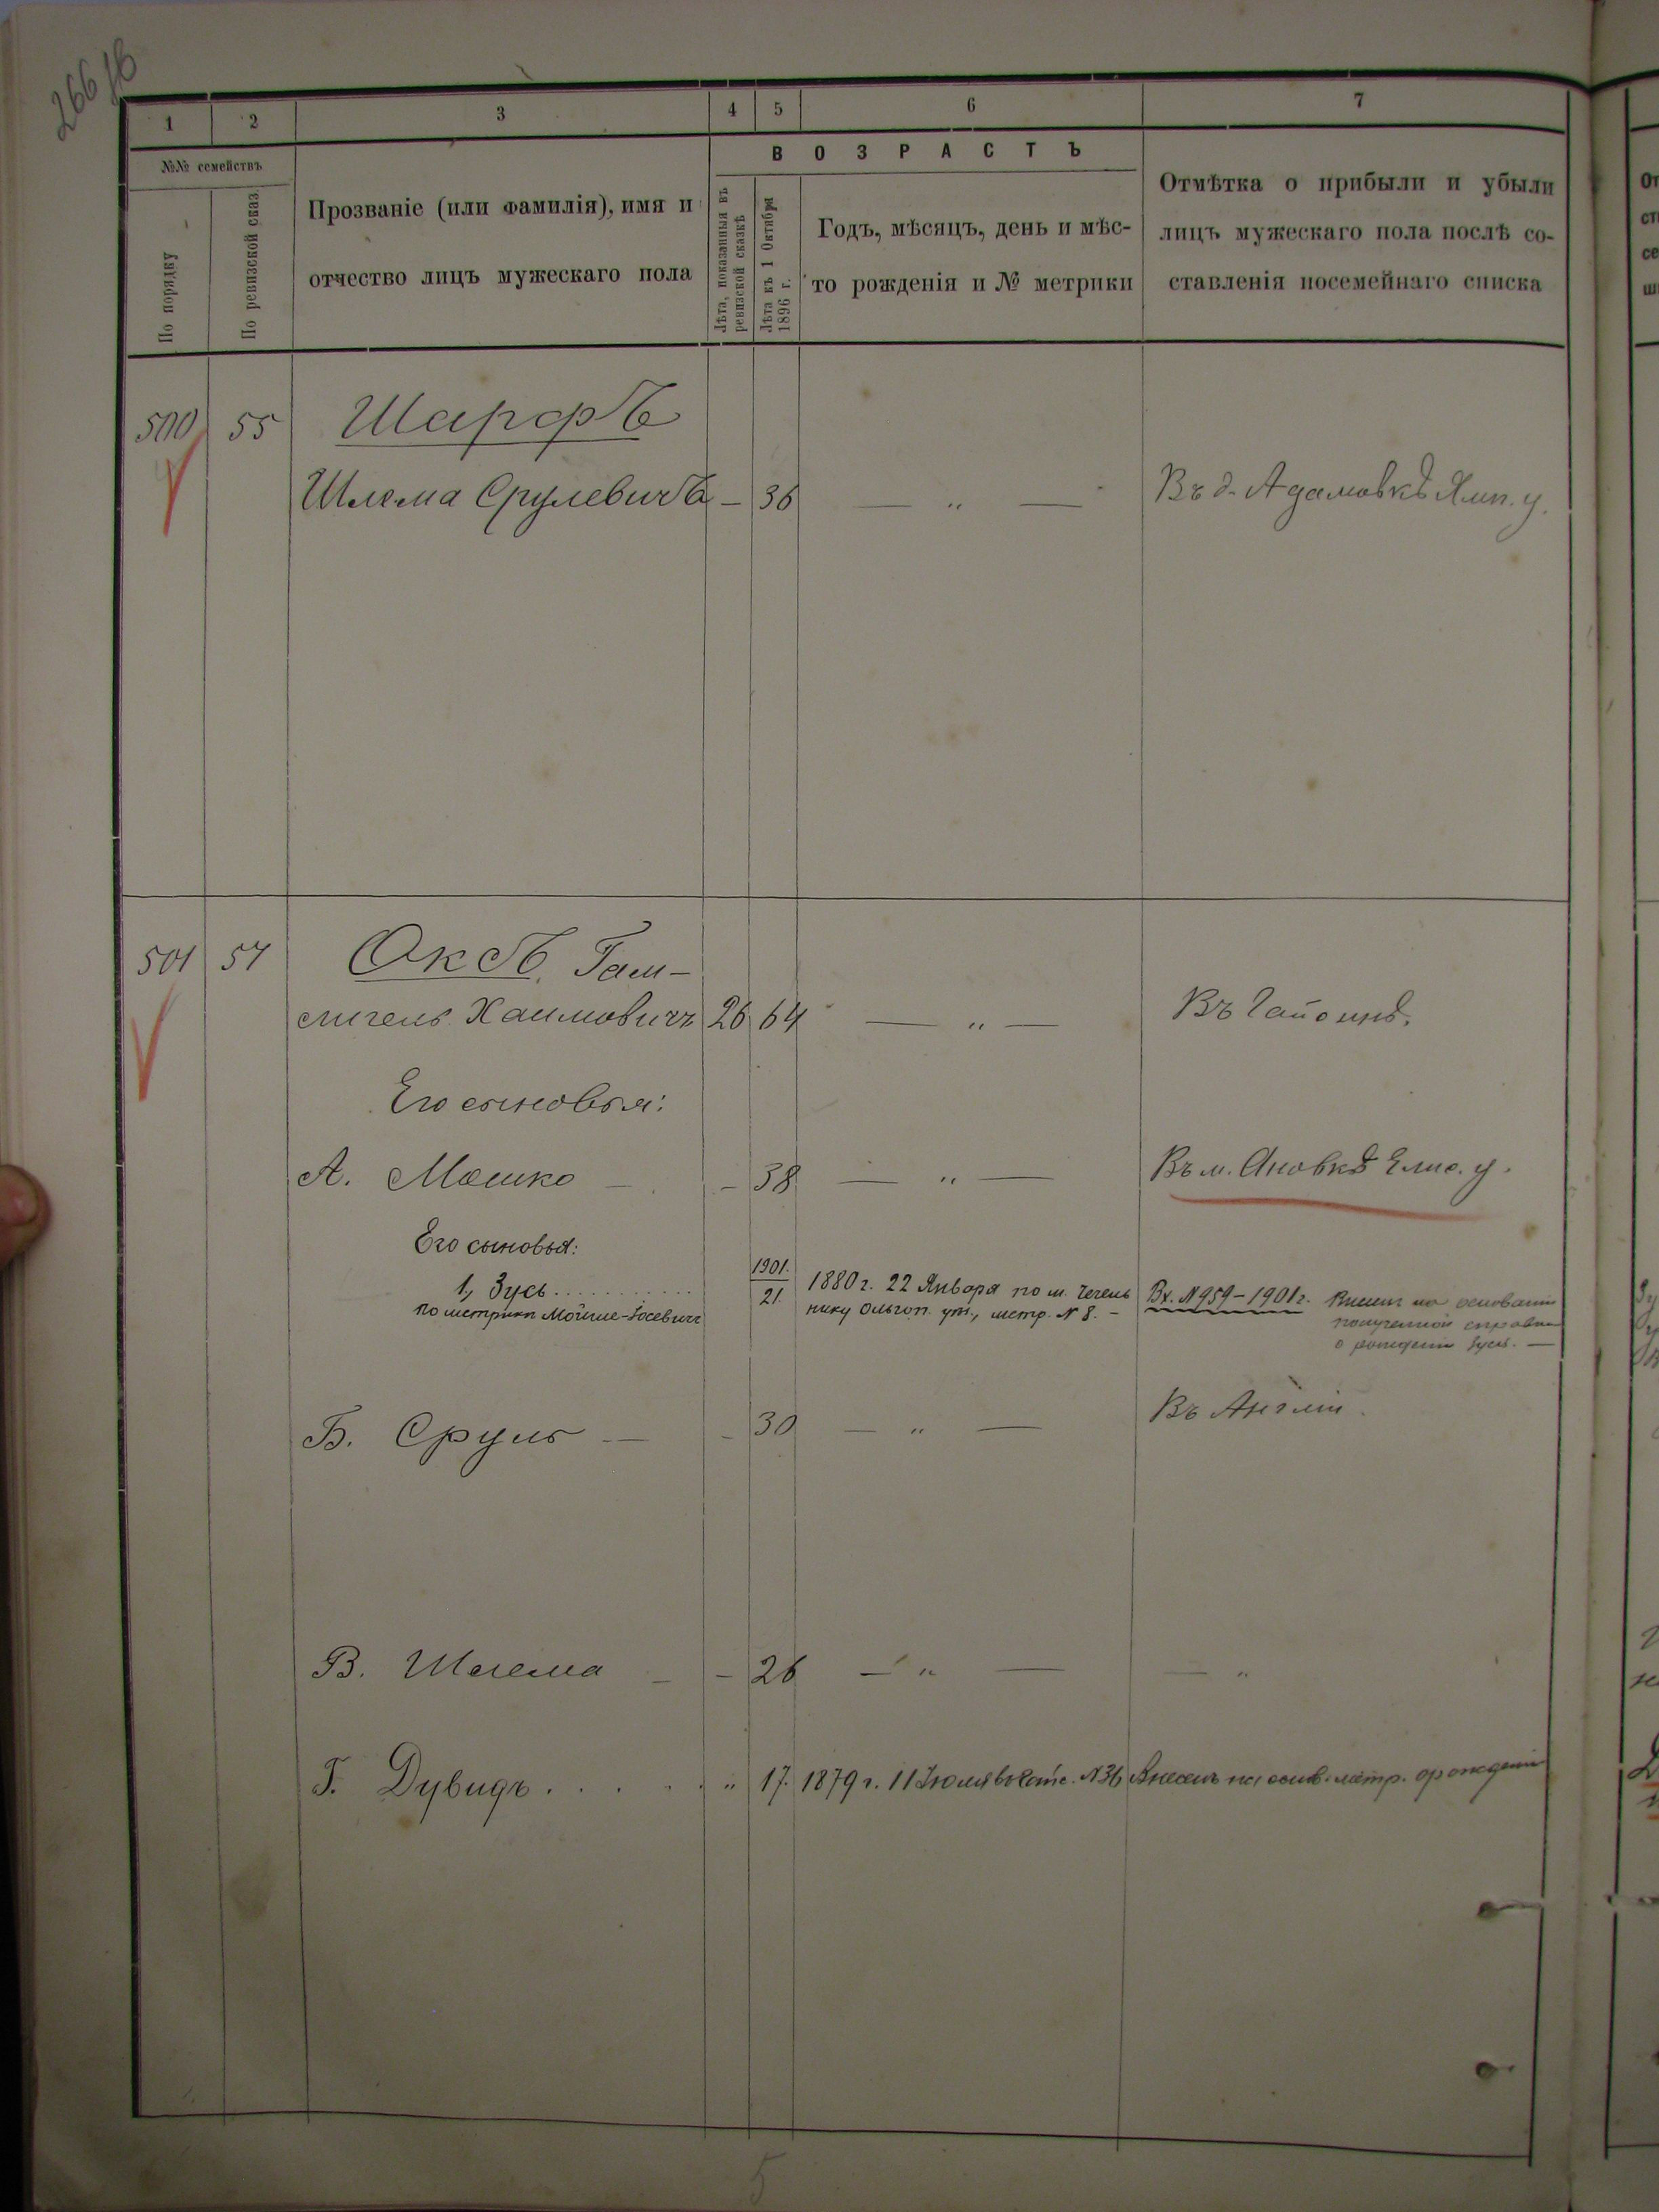 266 об
1 2 3 4 5 6 7
№№ семействъ
По порядку
По ревизской сказ.
Прозваніе (или фамилія), имя и
отчество лицъ мужескаго пола
ВОЗРАСТЪ
Лѣта, показанныя въ
ревизской сказкѣ
Лѣта къ 1 Октября
1896 г.
Годъ, мѣсяцъ, день и мѣс-
то рожденія и № метрики
Отмѣтка о прибыли и убыли
лицъ мужескаго пола послѣ со-
ставленія посемейнаго списка
500 55 Шарфъ
Шлема Срулевичъ — 36 — „ — Въ д. Адамовкѣ Ямп. у.
501 57 Оксъ, Гам-
Хаимовичъ 26 64 — „ — Въ
Его сыновья:
А. Мошко — — 38 — „ — Въ м. Яновкѣ у.
Его сыновья:
1, Зусь . . . . . . . . . . . 1901. 21. 1880 г. 22 Января по м. Чечель
по метрики Мойше-Іосевичъ нику Ольгоп. ут., метр. № 8. –
Вх. № 959 – 1901 г. Внесенъ на основаніи
полученной справки
о рожденіи Зуся. —
Б. Сруль — – 30 — „ — Въ Англіи.
В. Шлема — – 26 — „ — — „
Г. Дувидъ . . . . . . „ 17. 1879 г. 11 Іюля № 36 Внесенъ на основ. метр. о рожденіи
5